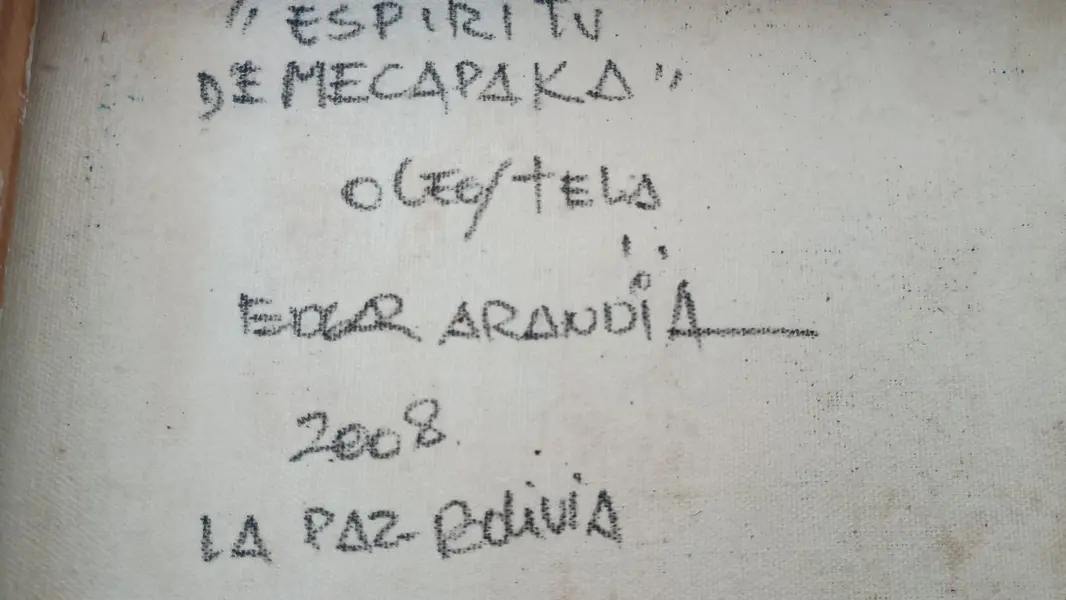 "ESPIRITU
DE MECAPAKA"
OLEO/TELA
EDGAR ARANDIA
2008.
LA PAZ-Bolivia